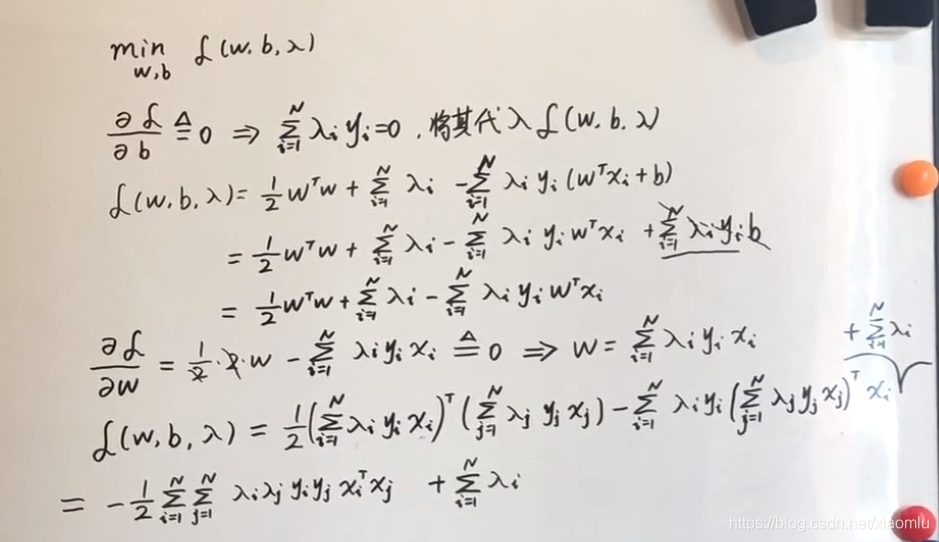 min ℒ(w, b, λ)
w,b
∂ℒ/∂b ≜ 0 ⇒ ∑_{i=1}^{N} λ_i y_i = 0 , 将其代入 ℒ(w, b, λ)
ℒ(w, b, λ) = 1/2 w^T w + ∑_{i=1}^{N} λ_i - ∑_{i=1}^{N} λ_i y_i (w^T x_i + b)
= 1/2 w^T w + ∑_{i=1}^{N} λ_i - ∑_{i=1}^{N} λ_i y_i w^T x_i + ∑_{i=1}^{N} λ_i y_i b
= 1/2 w^T w + ∑_{i=1}^{N} λ_i - ∑_{i=1}^{N} λ_i y_i w^T x_i
∂ℒ/∂w = 1/2 · 2 · w - ∑_{i=1}^{N} λ_i y_i x_i ≜ 0 ⇒ w = ∑_{i=1}^{N} λ_i y_i x_i
+ ∑_{i=1}^{N} λ_i
ℒ(w, b, λ) = 1/2 (∑_{i=1}^{N} λ_i y_i x_i)^T (∑_{j=1}^{N} λ_j y_j x_j) - ∑_{i=1}^{N} λ_i y_i (∑_{j=1}^{N} λ_j y_j x_j)^T x_i
= - 1/2 ∑_{i=1}^{N} ∑_{j=1}^{N} λ_i λ_j y_i y_j x_i^T x_j + ∑_{i=1}^{N} λ_i
https://blog.csdn.net/xiaomlu